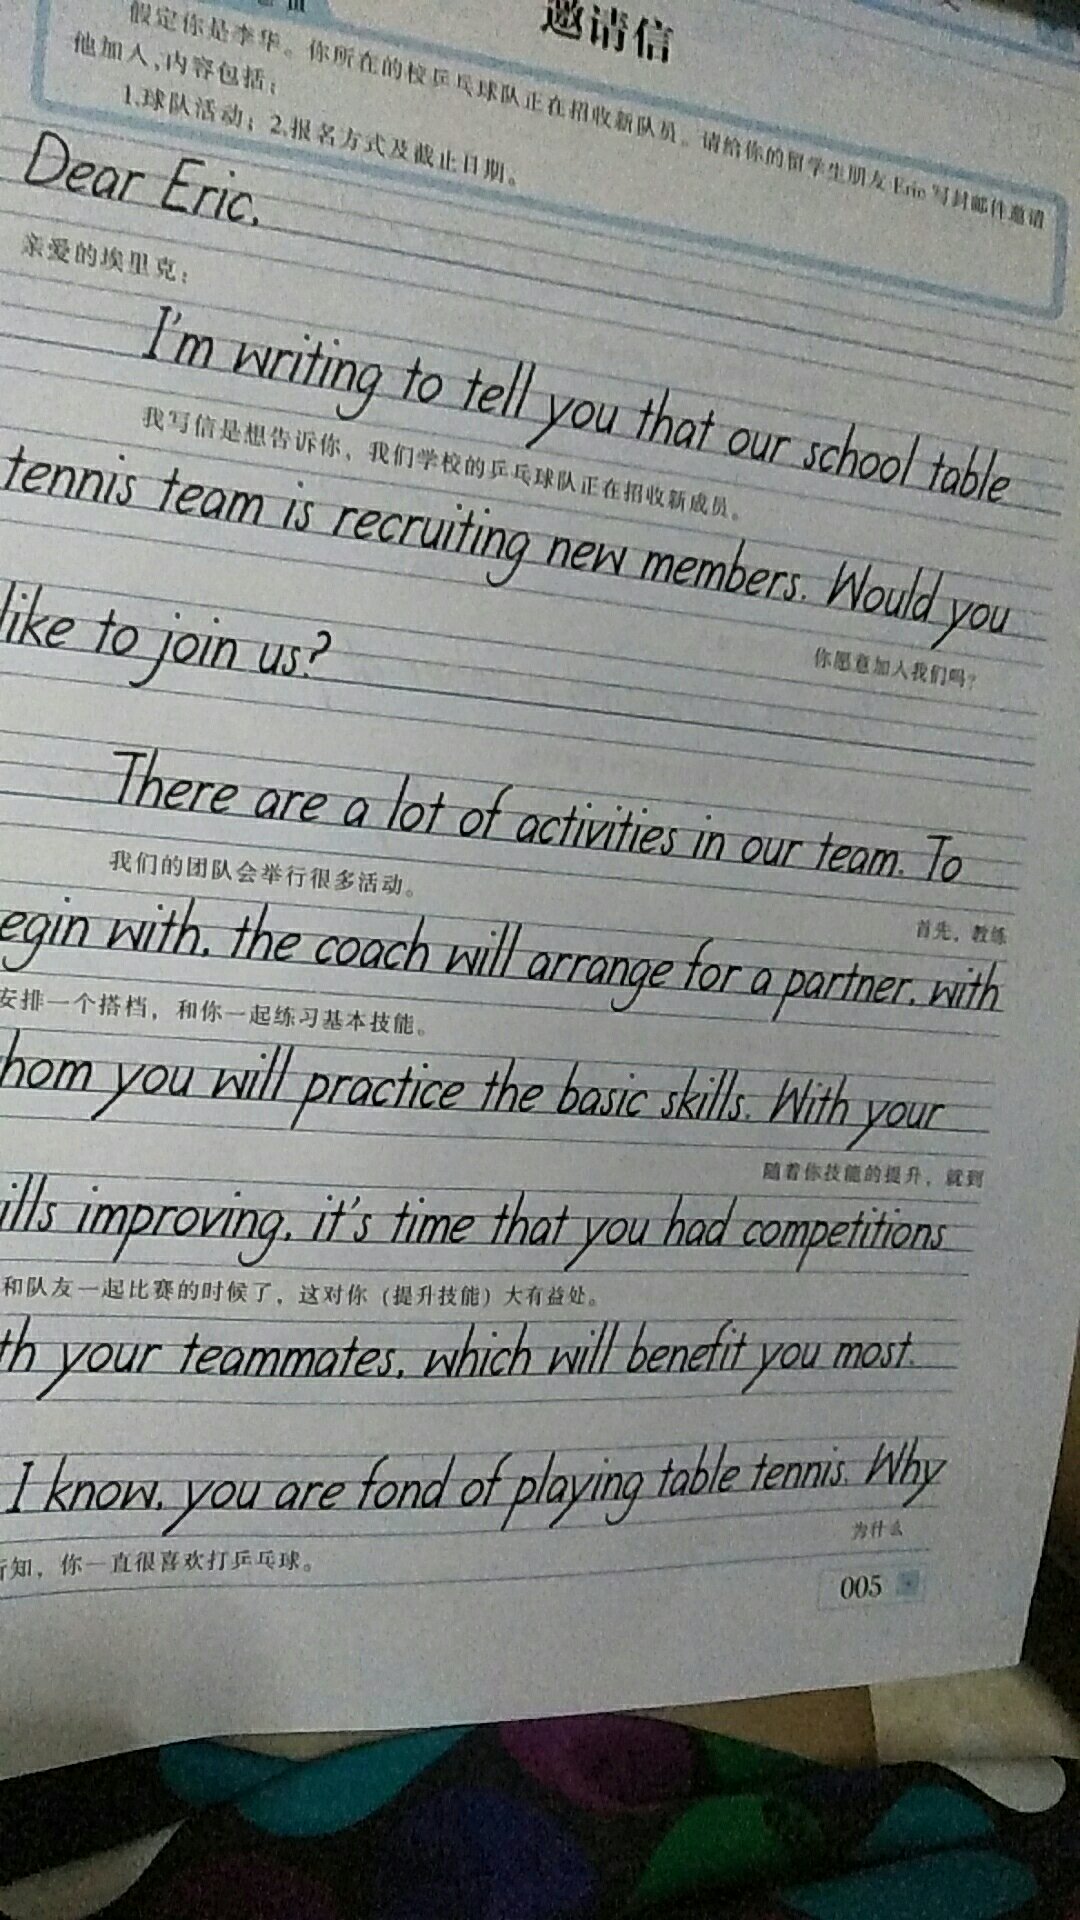 邀请信
假定你是李华。你所在的校乒乓球队正在招收新队员。请给你的留学生朋友 Eric 写封邮件邀请
他加入,内容包括:
1.球队活动; 2.报名方式及截止日期。
Dear Eric,
亲爱的埃里克:
I'm writing to tell you that our school table
我写信是想告诉你,我们学校的乒乓球队正在招收新成员。
tennis team is recruiting new members. Would you
你愿意加入我们吗?
like to join us?
There are a lot of activities in our team. To
我们的团队会举行很多活动。
首先,教练
egin with, the coach will arrange for a partner, with
安排一个搭档,和你一起练习基本技能。
hom you will practice the basic skills. With your
随着你技能的提升,就到
ills improving, it's time that you had competitions
和队友一起比赛的时候了,这对你(提升技能)大有益处。
th your teammates, which will benefit you most.
I know, you are fond of playing table tennis. Why
为什么
所知,你一直很喜欢打乒乓球。
005